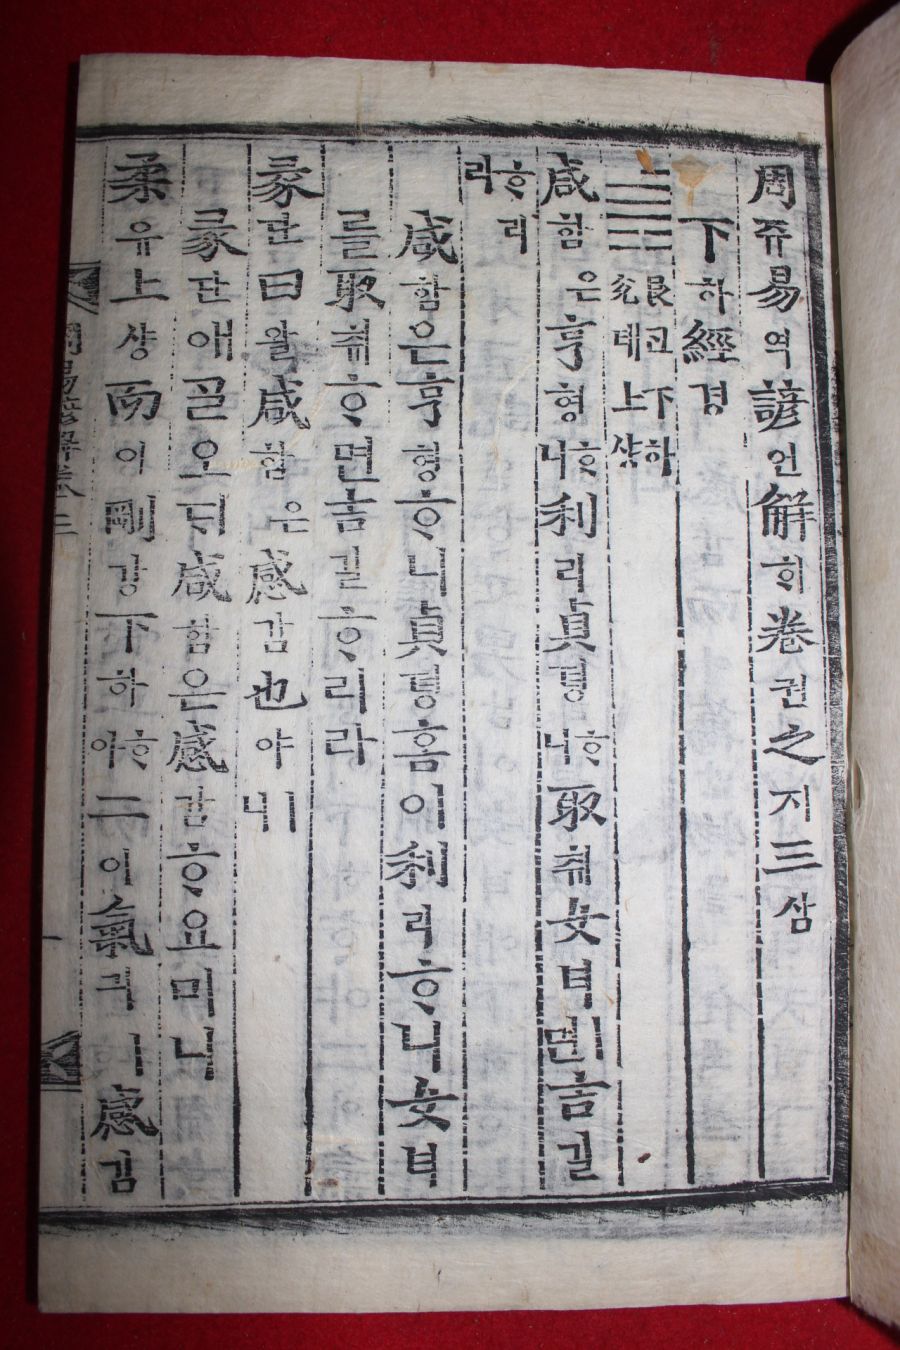 周쥬易역諺언解ᄒᆡ卷권之지三삼
下하經경
艮간下하
兌태上샹
咸함은亨형ᄒᆞ니利리貞뎡ᄒᆞ니取ᄎᆔ女녀ㅣ면吉길
ᄒᆞ리라
咸함은亨형ᄒᆞ니貞뎡홈이利리ᄒᆞ니女녀
를取ᄎᆔᄒᆞ면吉길ᄒᆞ리라
彖단曰왈咸함은感감也야ㅣ니
彖단애ᄀᆞᆯ오ᄃᆡ咸함은感감홈이니
柔유上샹而이剛강下하ᄒᆞ야二이氣긔ㅣ感감
周易諺解卷三
一